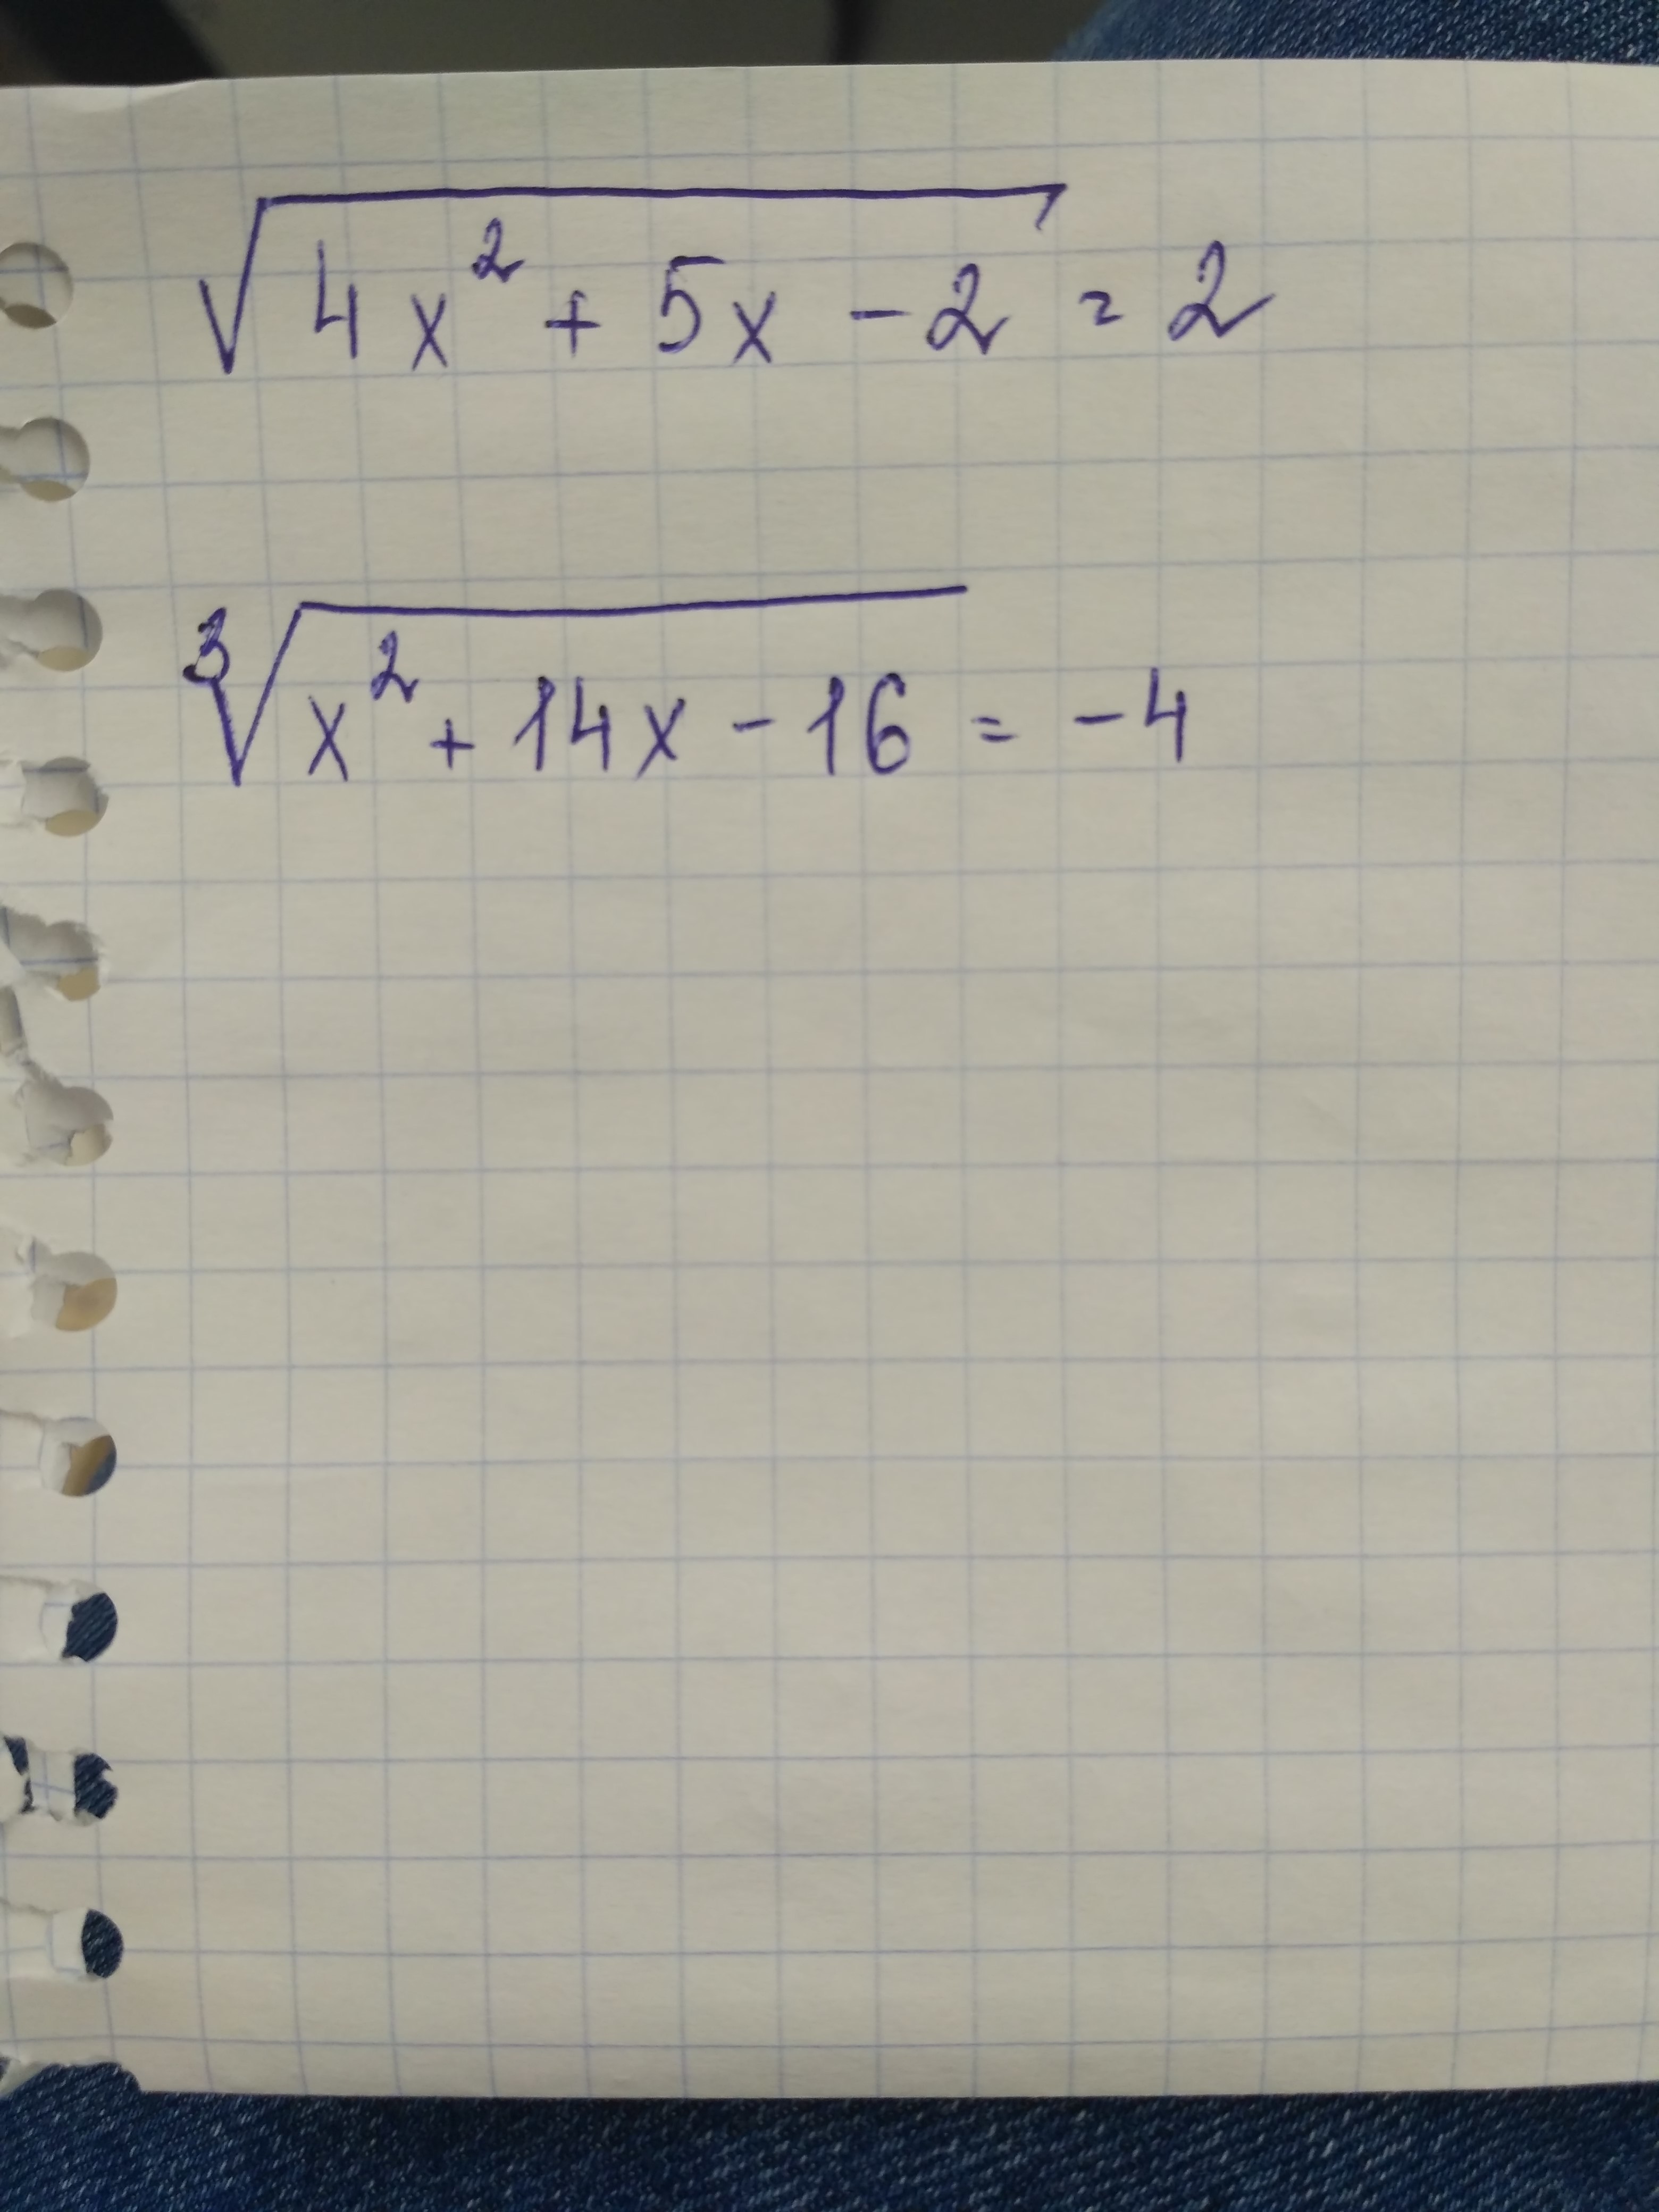 √(4x² + 5x - 2) = 2
∛(x² + 14x - 16) = -4